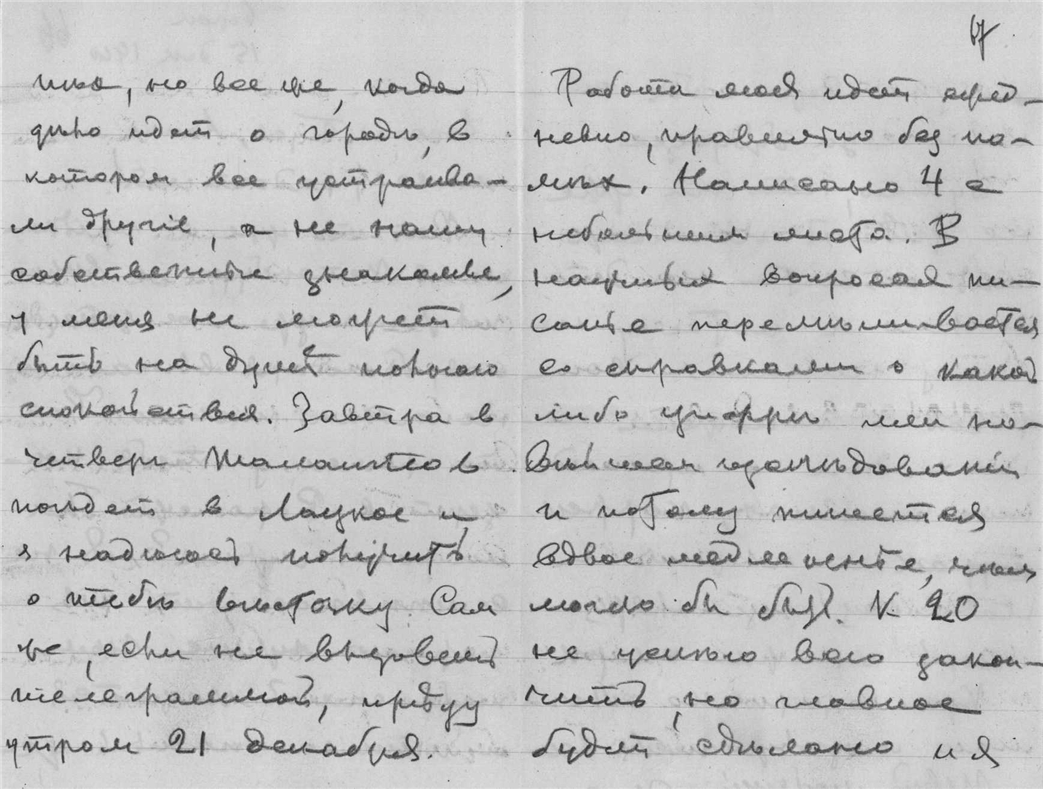 но все же, когда
дело идет о городе, в
котором все устраива-
ли другіе, а не наши
собственные знакомые,
у меня не может
быть на душе полного
спокойствия. Завтра в
четверг
поедет в Лацкое и
я надеюсь получить
о тебе весточку. Сам
же, если не вызовешь
телеграммой, приеду
утром 21 декабря.
67
Работа моя идет
правильно без по-
мех. Написано 4 с
небольшим листа. В
вопросах пи-
санье перемешивается
со справками о какой
либо цифры или но-
изследованіи
и потому пишется
вдвое медленнее, чем
могло бы быть. К 20
не успею всего закон-
чить, но главное
будет сделано и я